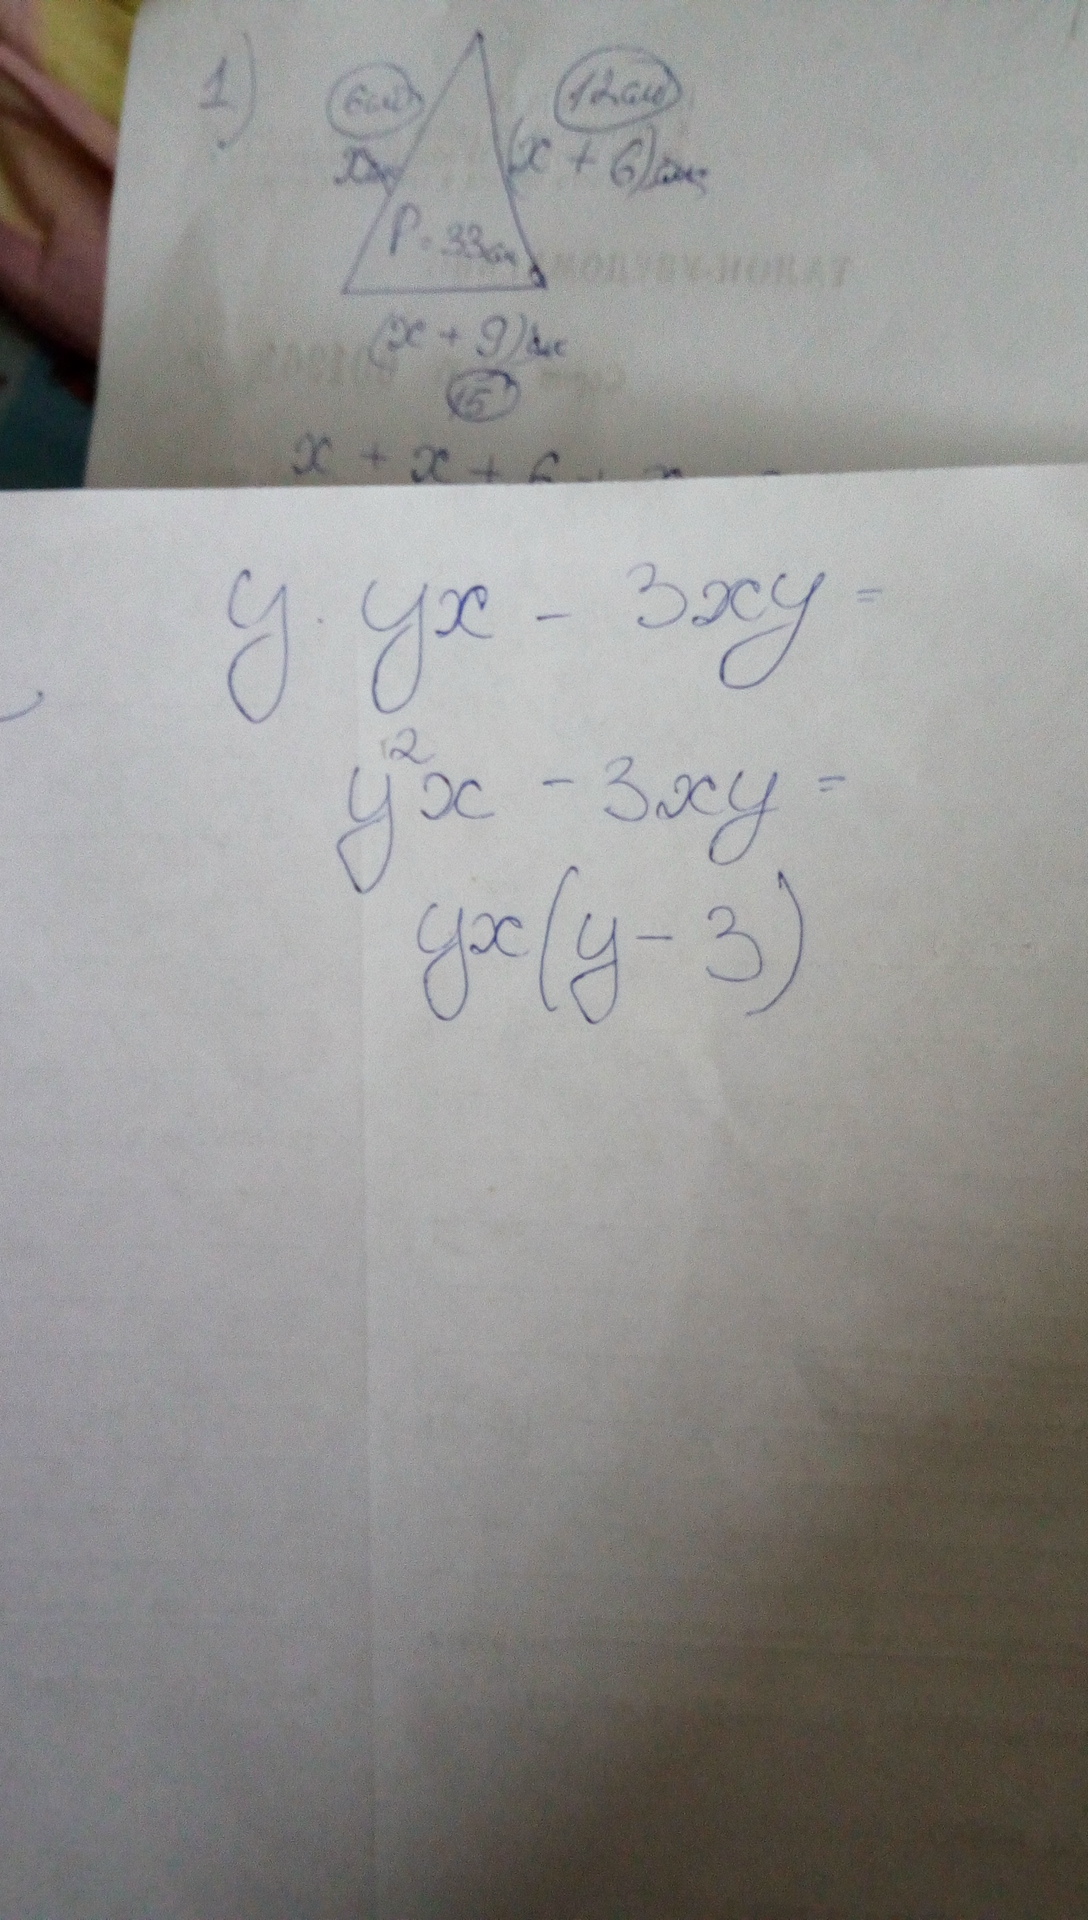 1)
6см
12см
x см
(x + 6) см
P = 33см
(x + 9) см
15
x + x + 6 +
y · yx - 3xy =
y²x - 3xy =
yx(y - 3)